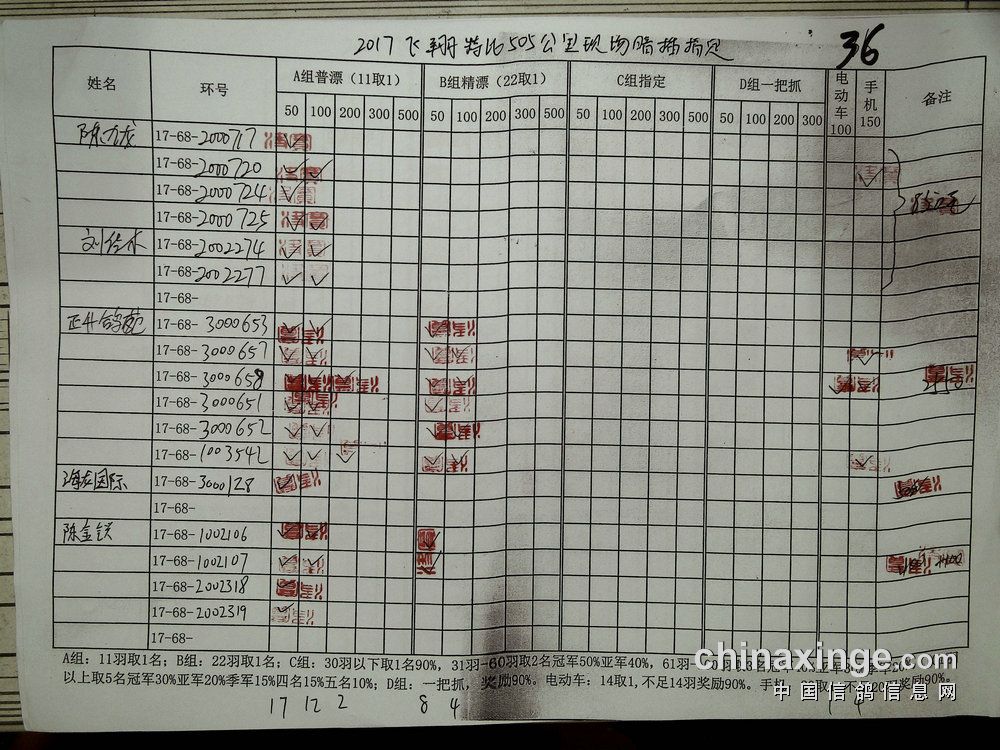 2017飞翔特比505公里现场暗插指定
36
姓名 环号 A组普漂（11取1） B组精漂（22取1） C组指定 D组一把抓 电动车100 手机150 备注
50 100 200 300 500 50 100 200 300 500 50 100 200 300 500 50 100 200 300
17-68-2000717
17-68-2000720
17-68-2000724
17-68-2000725
17-68-2002274
17-68-2002277
17-68-
17-68-3000653
17-68-3000657
17-68-3000658
17-68-3000651
17-68-3000652
17-68-1003542
国际 17-68-3000128
17-68-
17-68-1002106
17-68-1002107
17-68-2002318
17-68-2002319
17-68-
A组：11羽取1名；B组：22羽取1名；C组：30羽以下取1名90%，31羽-60羽取2名冠军50%亚军40%，61羽
以上取5名冠军30%亚军20%季军15%四名15%五名10%；D组：一把抓，奖励90%。电动车：14取1,不足14羽奖励90%。手机
17 12 2 8 4 1 4
chinaxinge.com
中国信鸽信息网